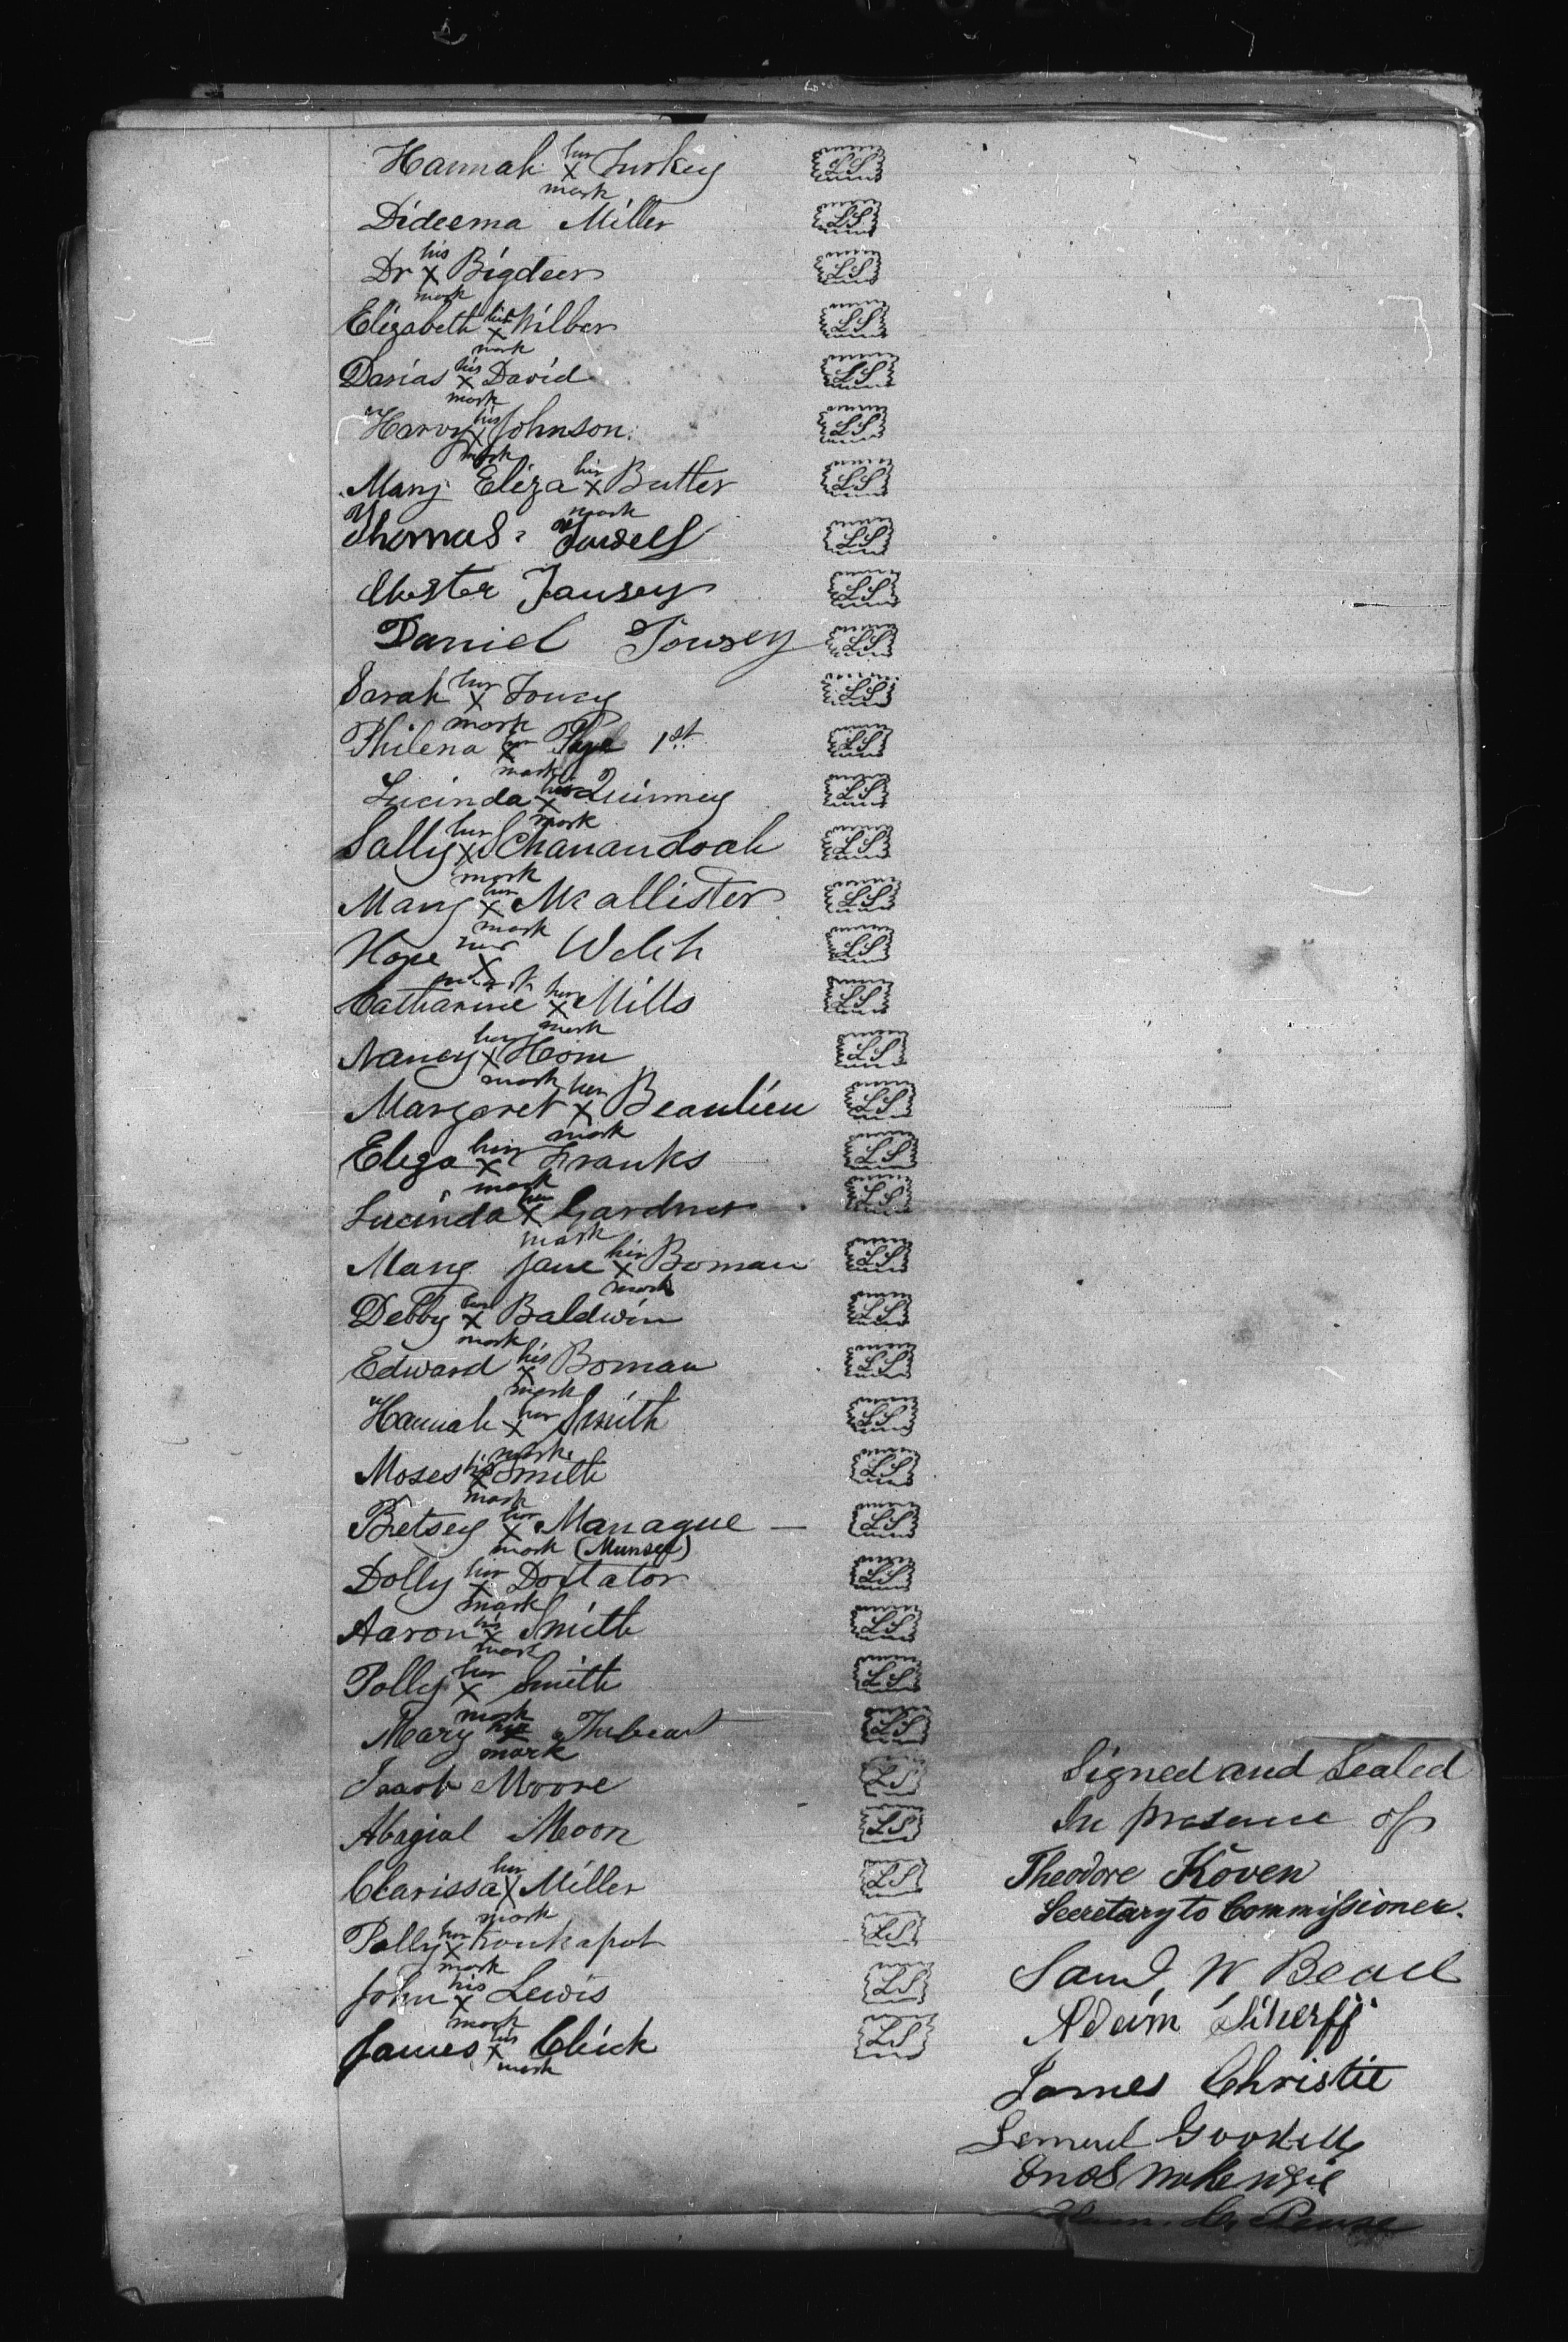 Hannah her x mark Turkey LS
Dideema Miller LS
Dr his x mark Bigdeer LS
Elizabeth her x mark Wilber LS
Darias his x mark David LS
Harvy his x mark Johnson LS
Mary Eliza her x mark Butler LS
Thomas LS
Chester Tausey LS
Daniel Towsey LS
Sarah her x mark Towcy LS
Philena her x mark Pye 1st LS
Lucinda her x mark Quinney LS
Sally her x mark Schanandoah LS
Mary her x mark McAllister LS
Hope her x mark Welch LS
Catharine her x mark Mills LS
Nancy her x mark Hom LS
Margaret her x mark Beaulieu LS
Eliza her x mark Franks LS
Lucinda her x mark Gardner LS
Mary Jane her x mark Boman LS
Debby her x mark Baldwin LS
Edward his x mark Boman LS
Hannah her x mark Smith LS
Moses his x mark Smith LS
Betsey her x mark Manague — LS
(Munsee)
Dolly her x mark Doxtator LS
Aaron his x mark Smith LS
Polly her x mark Smith LS
Mary her x mark LS
Jacob Moore LS
Abagial Moon LS
Clarissa her x mark Miller LS
Polly her x mark Konkapot LS
John his x mark Lewis LS
James his x mark Chick LS
Signed and Sealed
In presence of
Theodore Koven
Secretary to Commissioner.
Saml W Beall
Adam Scherff
James Christie
Lemuel Goodell
Enos McKenzie
H. Pease